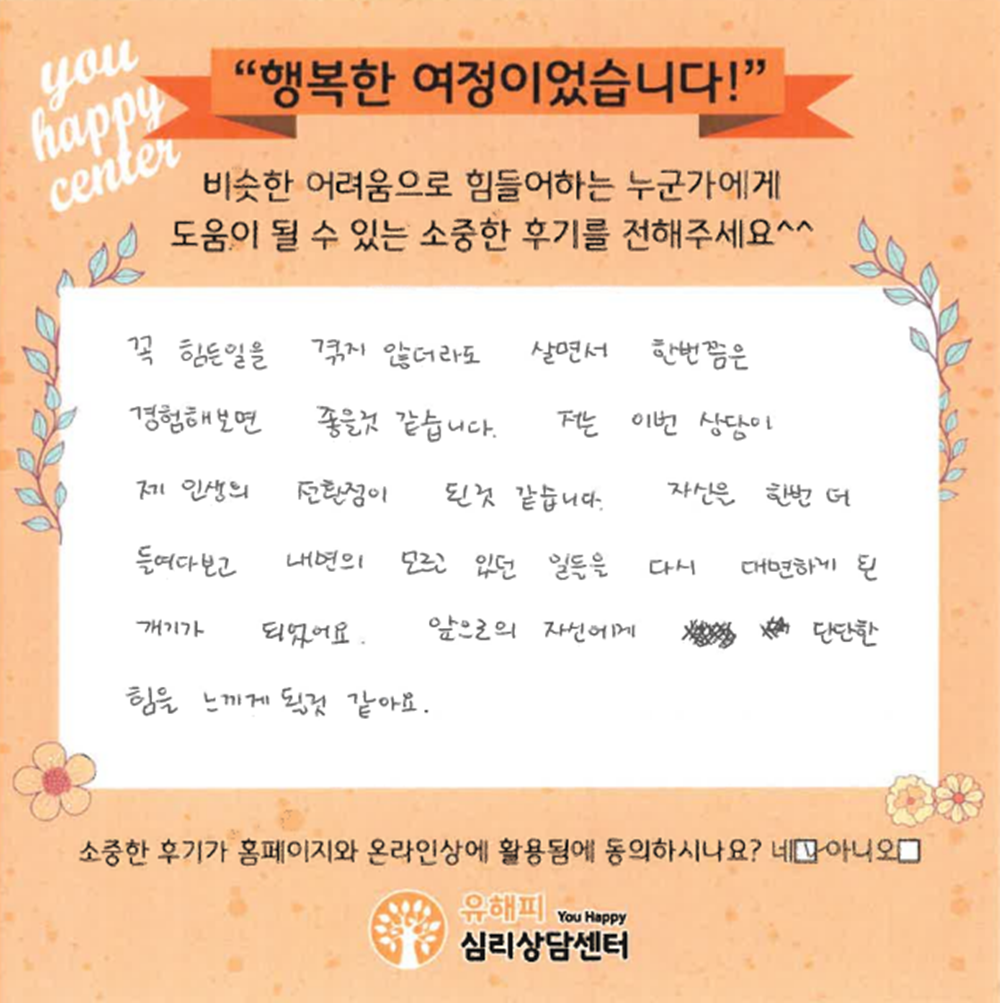 you
happy
center
“행복한 여정이었습니다!”
비슷한 어려움으로 힘들어하는 누군가에게
도움이 될 수 있는 소중한 후기를 전해주세요^^
꼭 힘든일을 겪지 않더라도 살면서 한번쯤은
경험해보면 좋을것 같습니다. 저는 이번 상담이
제 인생의 전환점이 된것 같습니다. 자신은 한번 더
들여다보고 내면의 모르고 있던 일들을 다시 대면하게 된
계기가 되었어요. 앞으로의 자신에게 단단한
힘을 느끼게 될것 같아요.
소중한 후기가 홈페이지와 온라인상에 활용됨에 동의하시나요? 네 아니오
유해피 You Happy
심리상담센터